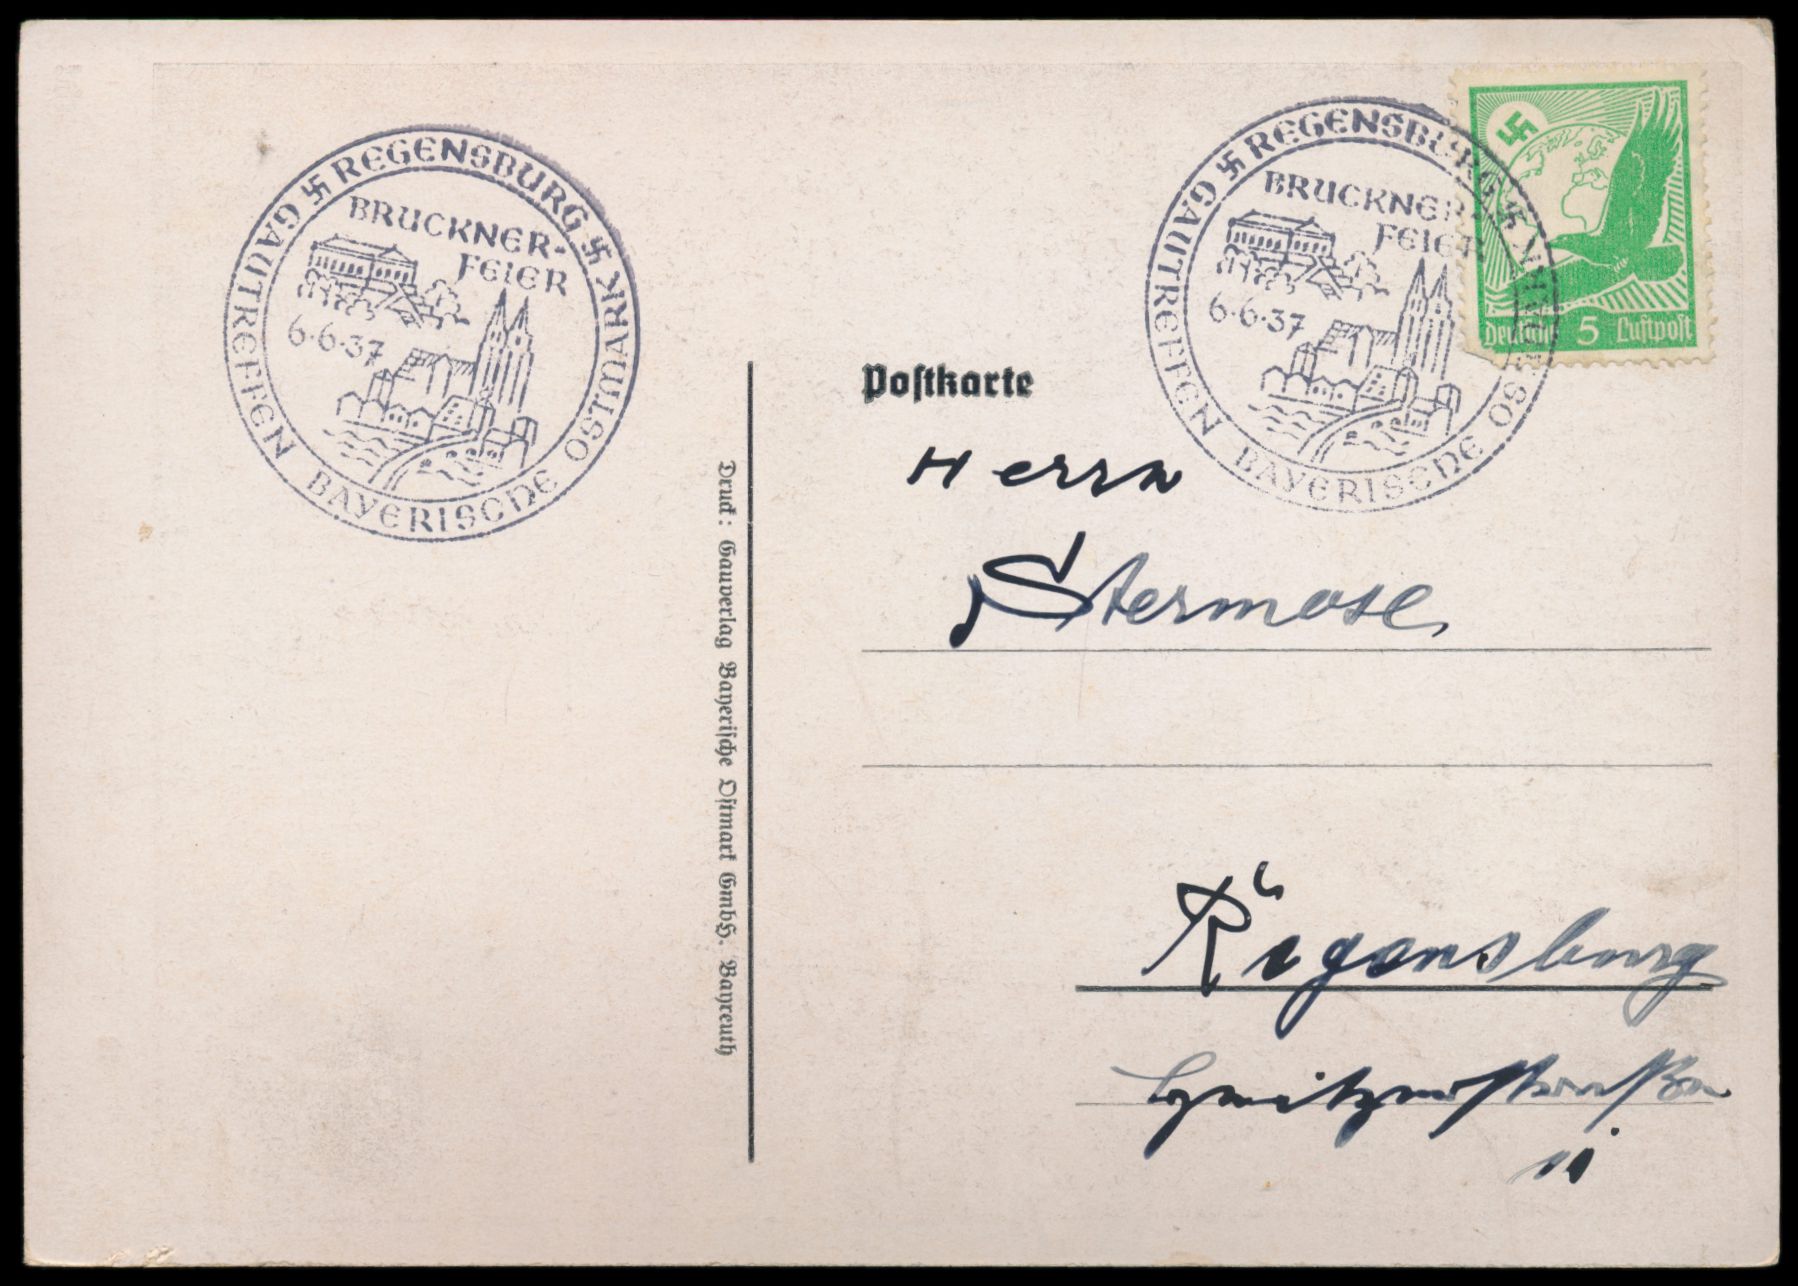 REGENSBURG
GAUTREFFEN BAYERISCHE OSTMARK
BRUCKNER-
FEIER
6.6.37
REGENSBURG
GAUTREFFEN BAYERISCHE OSTMARK
BRUCKNER-
FEIER
6.6.37
Deutsche 5 Luftpost
Postkarte
Druck: Gauverlag Bayerische Ostmark GmbH. Bayreuth
Herrn
Regensburg